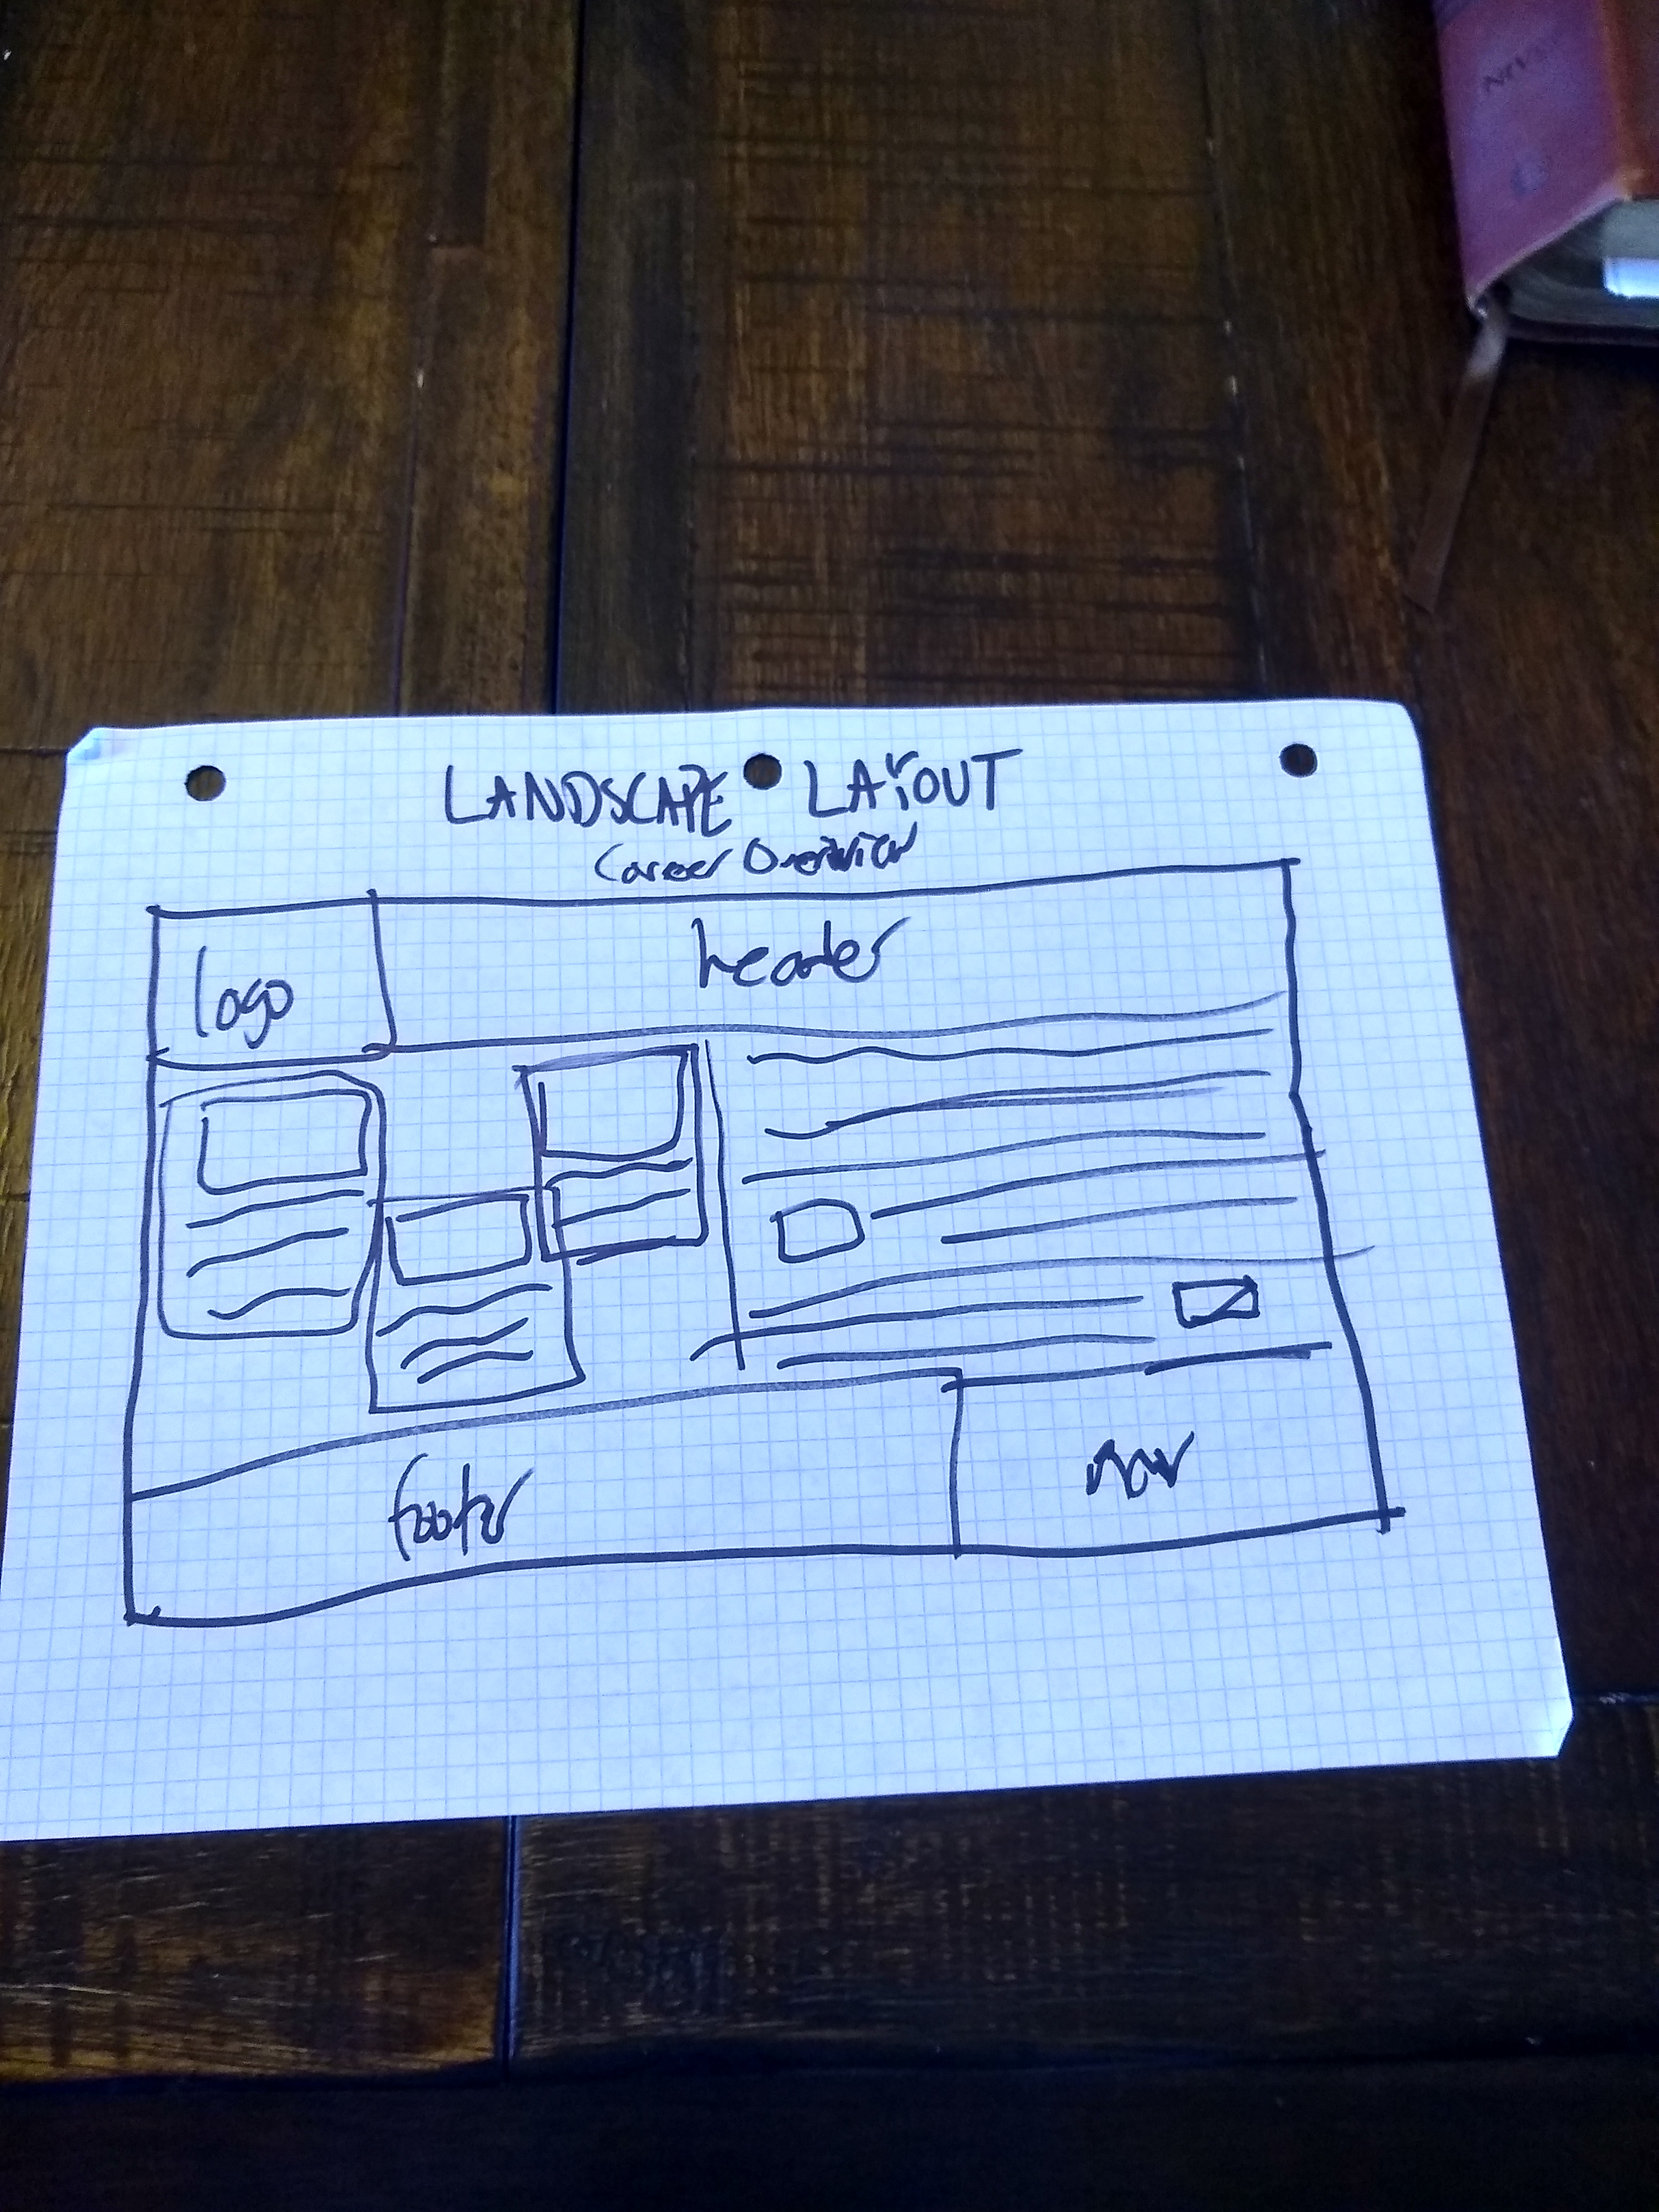 LANDSCAPE LAYOUT
Career Overview
logo
header
footer
nav